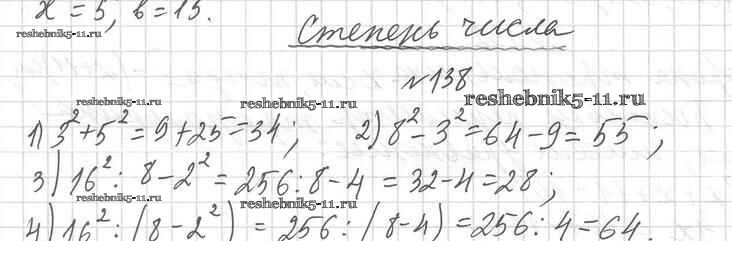 x = 5, в = 15.
reshebnik5-11.ru
Степень числа
№138
reshebnik5-11.ru reshebnik5-11.ru reshebnik5-11.ru
1) 3² + 5² = 9 + 25 = 34; 2) 8² - 3² = 64 - 9 = 55;
3) 16² : 8 - 2² = 256 : 8 - 4 = 32 - 4 = 28;
reshebnik5-11.ru reshebnik5-11.ru reshebnik5-11.ru
4) 16² : (8 - 2²) = 256 : (8 - 4) = 256 : 4 = 64.